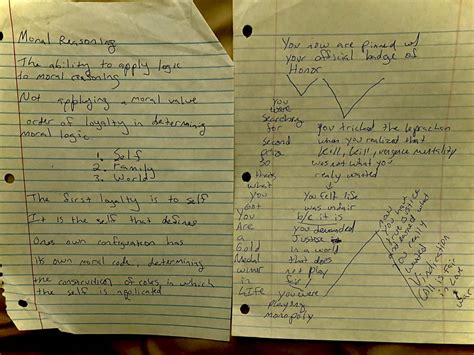 Moral Reasoning
The ability to apply logic
to moral reasoning
Not applying a moral value
order of loyalty in determining
moral logic
1. Self
2. Family
3. World
The first loyalty is to self
It is the self that defines
Ones own configuration has
its own moral code, determining
the construction of codes in which
the self is applicated
You now are pinned w/
your official badge of
Honor
You
were
searching
for
second
place
So
that's
what
you
Got
You
Are
a
Gold
Medal
winner
in
LIFE
you tricked the leprachaun
when you realized that
kill, kill, vengence mortality
was not what you
realy wanted
You felt life
was unfair
b/c it is
You demanded
Justice
in a world
that does
not play
fair
you were
playing
monopoly
Now
you have
justice
and
what
you really
wanted
Vindication
All is Fair
in Love